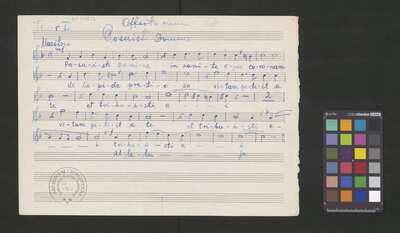 Tenor I.
Offertorium
Posuisti Domine
Maestoso
mf
Po-su-i-sti Do-mi-ne in capi-te e-jus coronam
de la-pi-de pre-ti-o so vi-tam pe-ti-it a
te et tri-bu-i-sti e - - i
vi-tam pe-ti-it a te et tri-bu-i-sti e -
- - i tri-bu-i-sti e - - i
Al-le-lu - - ja